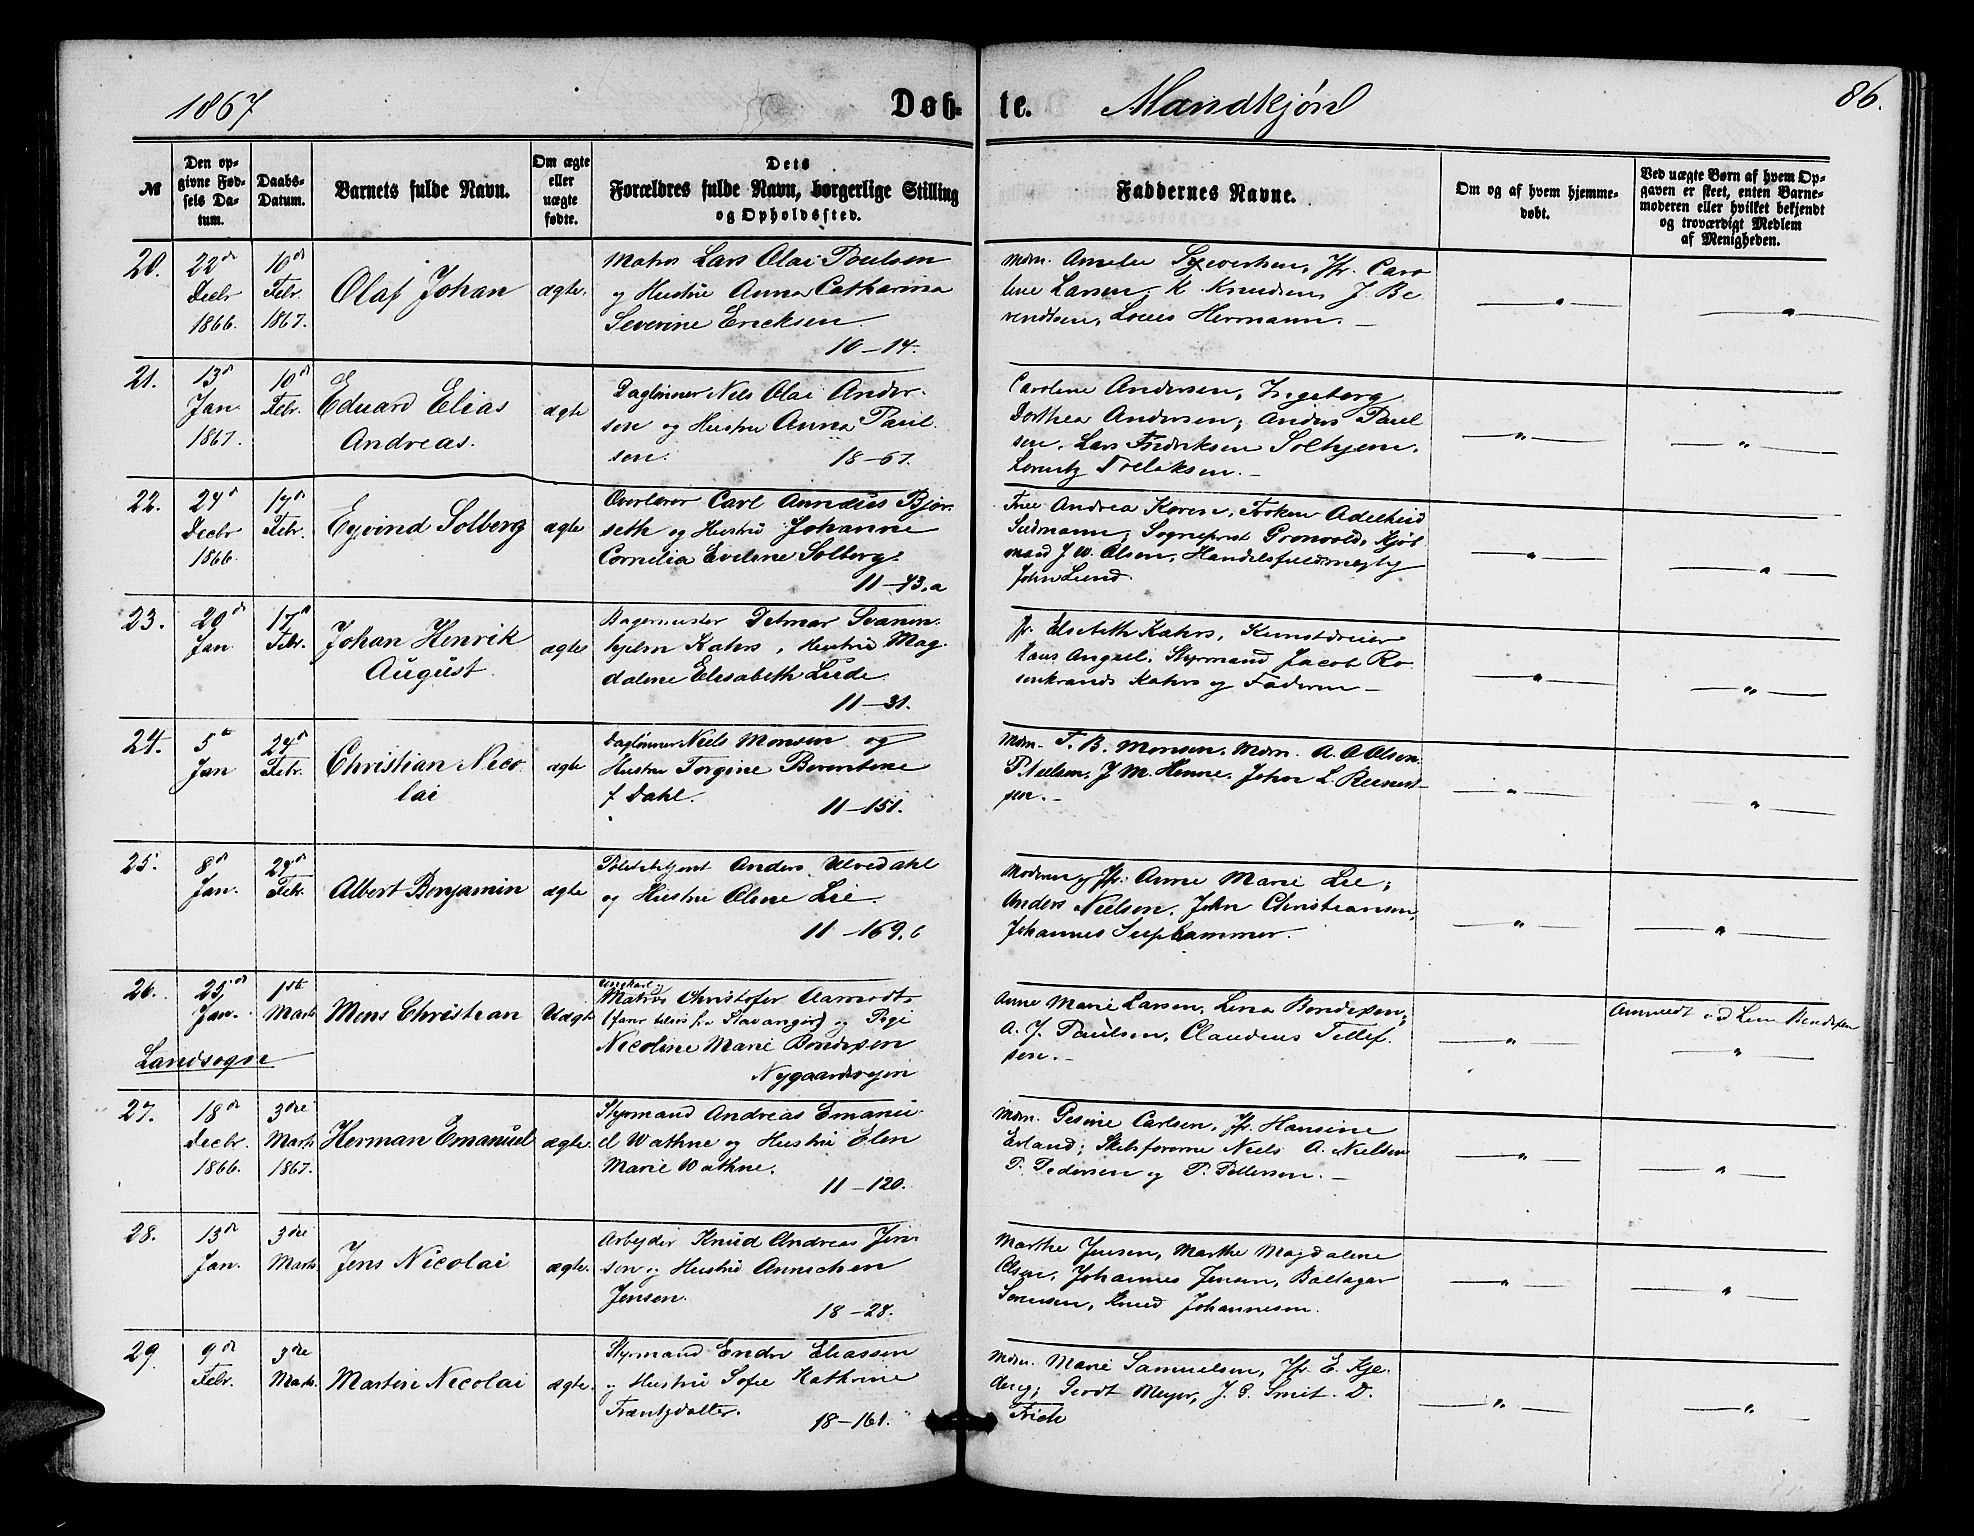 1867
Døb-
te.
Mandkjøn
86.
№
Den op-
givne Fød-
sels Da-
tum.
Daabs-
Datum.
Barnets fulde Navn.
Om ægte
eller
uægte
fødte.
Dets
Forældres fulde Navn, borgerlige Stilling
og Opholdssted.
Faddernes Navne.
Om og af hvem hjemme-
døbt.
Ved uægte Børn af hvem Op-
gaven er skeet, enten Barne-
moderen eller hvilket bekjendt
og troværdigt Medlem
af Menigheden.
20.
22de
Decbr
1866.
10de
Febr.
1867.
Olaf Johan
ægte.
Matros Lars Olai Poulsen
og Hustru Anna Catharina
Severine Ericksen.
10—14.
Mdm. Amelie Syvertsen, Jfr. Caro
line Larsen, K Knudsen, J. Be
rendtsen, Louis Hermann. —
21.
13de
Jan.
1867.
10de
Febr.
Eduard Elias
Andreas.
ægte
Daglønner Nels Olai Ander-
sen og Hustru Anna Paul
sen.
18—67.
Caroline Andersen, Ingeborg
Dorthea Andersen; Anders Paul
sen, Lars Fredriksen Solhjem,
Lorentz Tollaksen. —
22.
24de
Decbr
1866.
17de
Febr.
Eyvind Solberg
ægte
Overlærer Carl Annæus Bjør-
seth og Hustru Johanne
Cornelia Eveline Solberg.
11—43.a
Frue Andrea Koren, Frøken Adelheid
Sognepræst Grønvold, Kjøb
mand J. W. Olsen, Handelsfuldmægtig
John Lund.
23.
20de
Jan
17de
Febr.
Johan Henrik
August.
ægte
Bagermester Detmar Svanen-
hjelm Kahrs, Hustru Mag
dalene Elisabeth Lude.
11—31.
Jfr. Elsebeth Kahrs, Kunstdreier
Hans Angell, Styrmand Jacob Ro
senkrands Kahrs og Faderen —
24.
5te
Jan
24de
Febr.
Christian Nico
lai
ægte
Daglønner Niels Monsen og
Hustru Torgine Berentine
f. Dahl.
11—151.
Mdm. T. B. Monsen, Mdm. A. O Olsen.
P Nielsen, J. M. Henne, Johan L.
sen. —
25.
8de
Jan.
24de
Febr.
Albert Benjamin
ægte
Politibetjent Anders Ulvedahl
og Hustru Oline Lie.
11—169.b
Moderen og Jfr. Anne Marie Lie;
Anders Nielsen, John Christiansen,
Johannes
26.
25de
Jan.
1ste
Marts
Mons Christian
Uægte
Ungkarl og
Matros Christofer Aamodt
Stavanger) og Pige
Nicoline Marie Bendixen
Nygaardsvejen
Landsogne
Anne Marie Larsen, Lina Bendixen;
A. J. Paulsen, Claudius Tellef
sen. —
Anmeldt ved Lina Bendixen
27.
18de
Decbr.
1866.
3die
Marts
1867.
Herman Emanuel
ægte.
Styrmand Andreas Emanu-
el Wathne og Hustru Elen
Marie Wathne.
11—120.
Mdm. Gesine Carlsen, Jfr. Hansine
Erland; Skibsførerne Niels A. Nielsen
P. Pedersen og P. Pettersen. —
28.
13de
Jan.
3die
Marts.
Jens Nicolai
ægte.
Arbejder Knud Andreas Jen
sen og Hustru Annichen
Jensen.
18—28.
Marthe Jensen, Marthe Magdalene
Olsen, Johannes Jensen, Baltazar
Sørensen, Knud Johannesen.
29
9de
Febr.
3die
Marts.
Martin Nicolai
ægte.
Styrmand Endre Eliassen
og Hustru Sofie Kathrine
Frantzdatter.
18—161.
Mdm. Marie Samuelsen, Jfr. E. Kje
Gerdt Meyer, J. G. Smit. D.
Frich